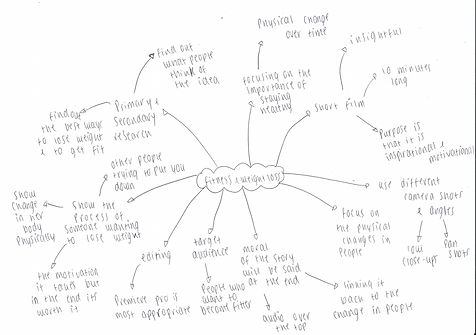 find out
what people
think of
the idea
Physical change
over time
insightful
find out
the best ways
to lose weight
& to get fit
Primary &
Secondary
research
focusing on the
importance of
staying
healthy
short film
10 minutes
long
Purpose is
that it is
inspirational & motivational
other people
trying to put you
down
fitness & weight loss
show
change
in her
body
Physically
Show the
process of
someone wanting
to lose weight
use different
camera shots
& angles
low
close-ups
Pan
shots
the motivation
it takes but
in the end its
worth it
editing
Premiere pro is
most appropriate
target
audience
People who
want to
become fitter
moral
of the story
will be said
at the end
audio over
the top
focus on
the physical
changes in
People
linking it
back to the
change in people